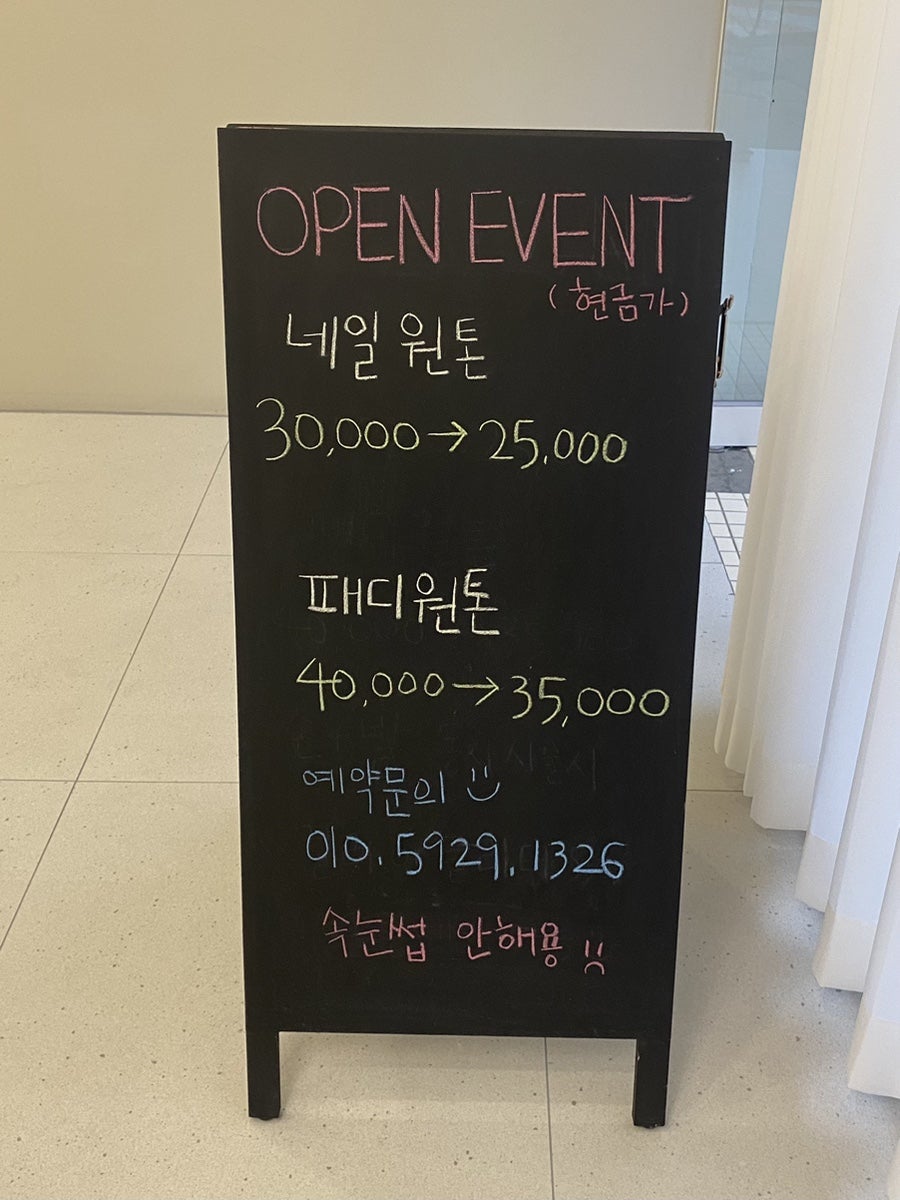 OPEN EVENT
(현금가)
네일 원톤
30,000→25,000
패디원톤
40,000→35,000
예약문의
010.5929.1326
속눈썹 안해용